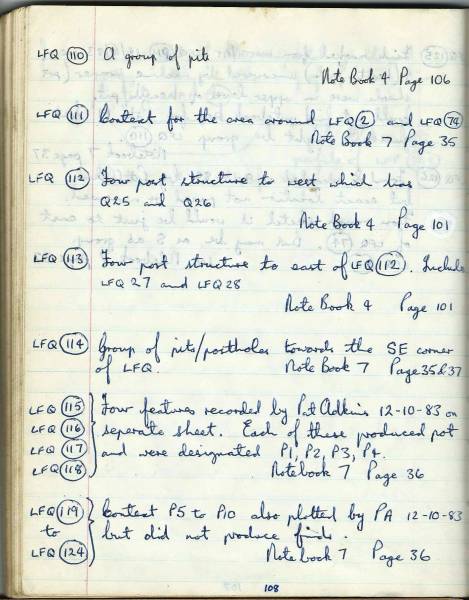 LFQ 110 A group of pits
Note Book 4 Page 106
LFQ 111 Context for the area around LFQ 2 and LFQ 79
Note Book 7 Page 35
LFQ 112 Four post structure to west which has
Q25 and Q26
Note Book 4 Page 101
LFQ 113 Four post structure to east of LFQ 112. Include
LFQ 27 and LFQ 28
Note Book 4 Page 101
LFQ 114 Group of pits/postholes towards the SE corner
of LFQ. Note Book 7 Page 35 & 37
LFQ 115 Four features recorded by Pat Adkins 12-10-83 on
LFQ 116 seperate sheet. Each of these produced pot
LFQ 117 and were designated P1, P2, P3, P4.
LFQ 118 Notebook 7 Page 36
LFQ 119 Context P5 to P10 also plotted by PA 12-10-83
to but did not produce finds.
LFQ 124 Notebook 7 Page 36
108